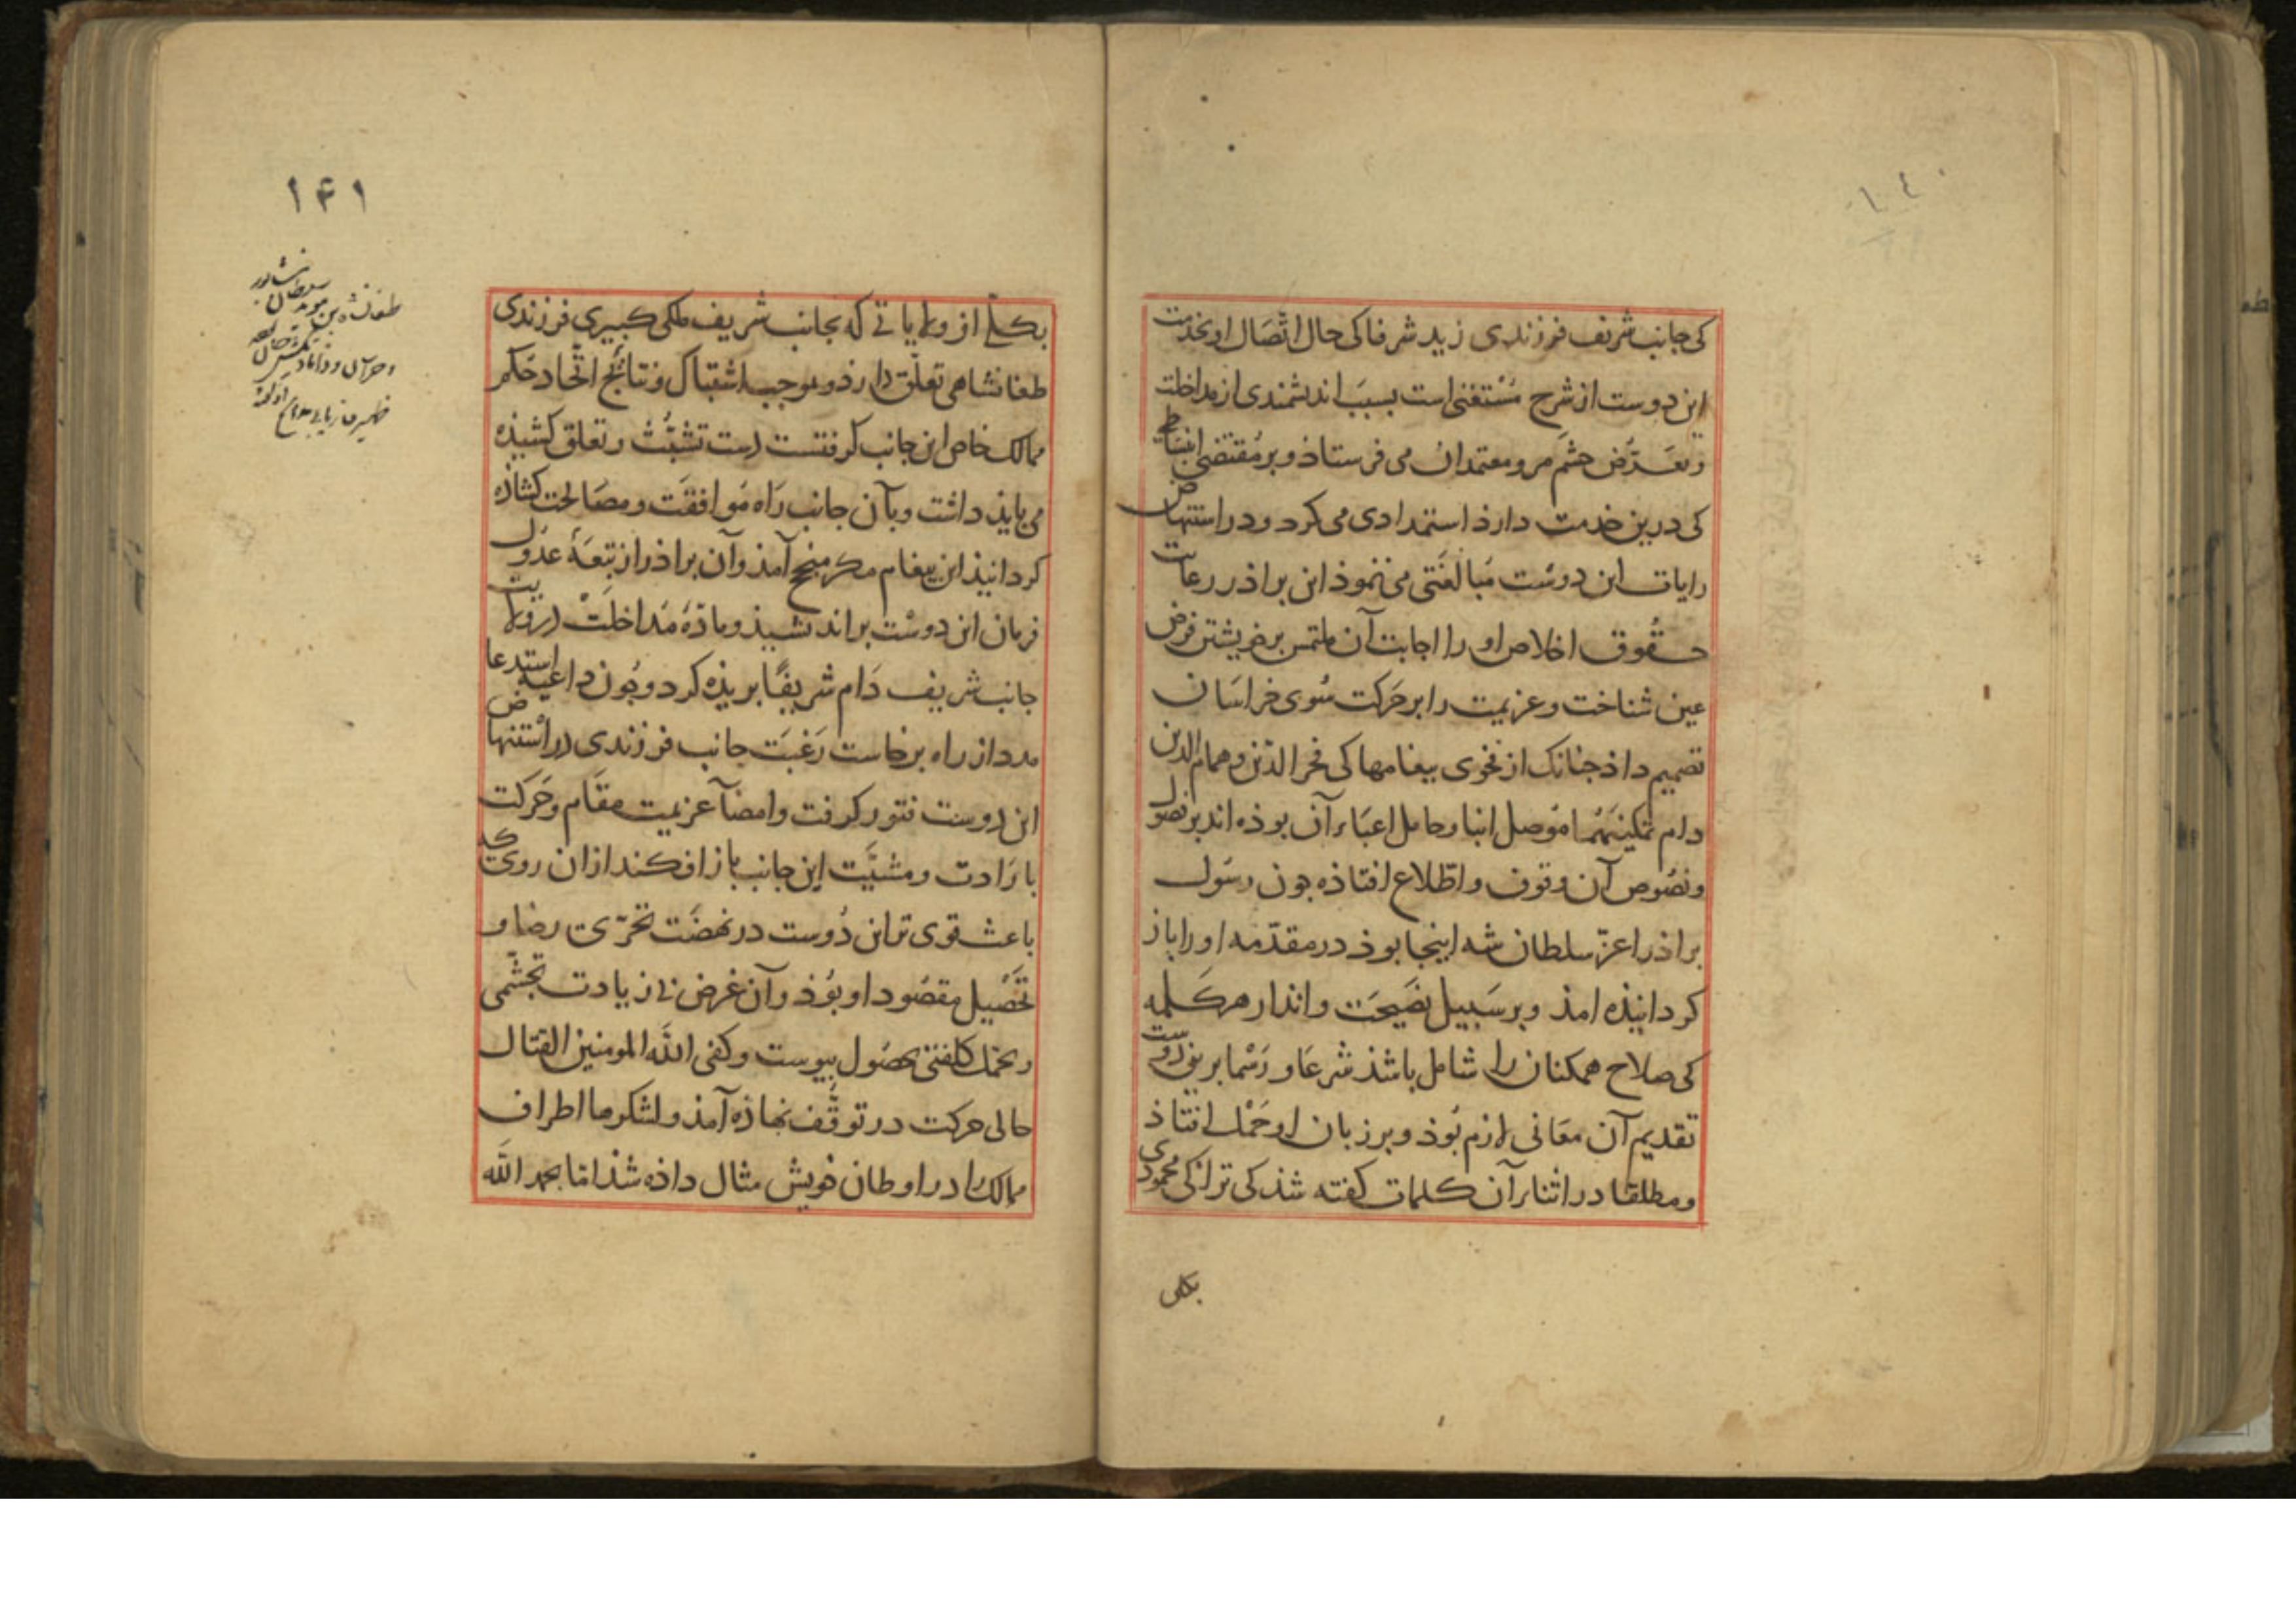 ١٤٠
کی جانب شریف فرزندی زید شرفا کی حال اتّصال او بخدمت
این دوست از شرح مُسْتغنی است بسبَب اندیشمندی از مداخلت
و تعَرّض حشَم مرو معتمدان می فرستاذ و بر مُقتضی انبسَاطی
کی درین خدمت دارذ استمدادی می کرد و در استنهاض
رایات این دوست مُبالغتی می نموذ این براذر رعایت
حقُوق اخلاص او را اجابت آن ملتمس بر خویشتن فرض
عین شناخت و عزیمت را بر حَرکت سُوی خراسَان
تصمیم داذ جنانک از فَحْوی بیغامها کی فخر الدّین و همام الدین
دام تمکینهُمَا مُوصل انبا و حامل اعبَاء آن بوذه اند بر فصُول
و نصُوص آن وقوف و اطّلاع افتاذه جون رسَول
براذر اعزّ سلطان شه اینجا بوذ در مقدّمه او را باز
کردانیذه امذ و بر سَبیل نصَیحَت و انذار هر کلمه
کی صلاح همکنان را شامل باشذ شرعَا و رَسْما برین دوست
تقدیم آن معَانی لازم بُوذ و بر زبان او حَمْل افتاذ
و مطلقا در اثناء آن کلمات کفته شذ کی ترا کی محمودی
بکلی
١۴١
بکلّی از ولایاتی که بجانب شریف ملکی کبیری فرزندی
طغانشاهی تعلّق دارذ و بموجب اشتباک و نتائج اتّحاد حُکم
ممالک خاص این جانب کرفتست دست تشبُّث و تعلق کشیذه
می بایذ داشت و بآن جانب رَاه مُوافقَت و مصَالحت کشاذه
کردانیذ این بیغام مکر منجح آمذ و آن براذر از تبعَۀ عدُول
فرمان این دوسْت براندیشیذ و مادّۀ مُداخلَتْ در ولایت
جانب شریف دَام شریفًا بریذه کرد و جُون داعیه استدعا
مدد از راه برخاست رَغبَت جانب فرزندی در اسْتنهاض
این دوست فتور کرفت و امضآ عزیمت مقَام و حَرکت
باِرَادت و مشیَّت این جانب باز افکند از ان روی که
باعث قوی تر این دُوست در نهضَت تحرّی رضا و
تحَصْیل مقصُود او بوُذ و آن غرض بی زیادت تجشّمی
و تحمّل کلفتی بحصُول بیوست و کفی اللّه المومنین القتال
حالی حرکت در توقُّف نهاذه آمذ و لشکرها اطراف
ممالک را در اوطان خویش مثال داذه شذ امّا بحمد اللّه